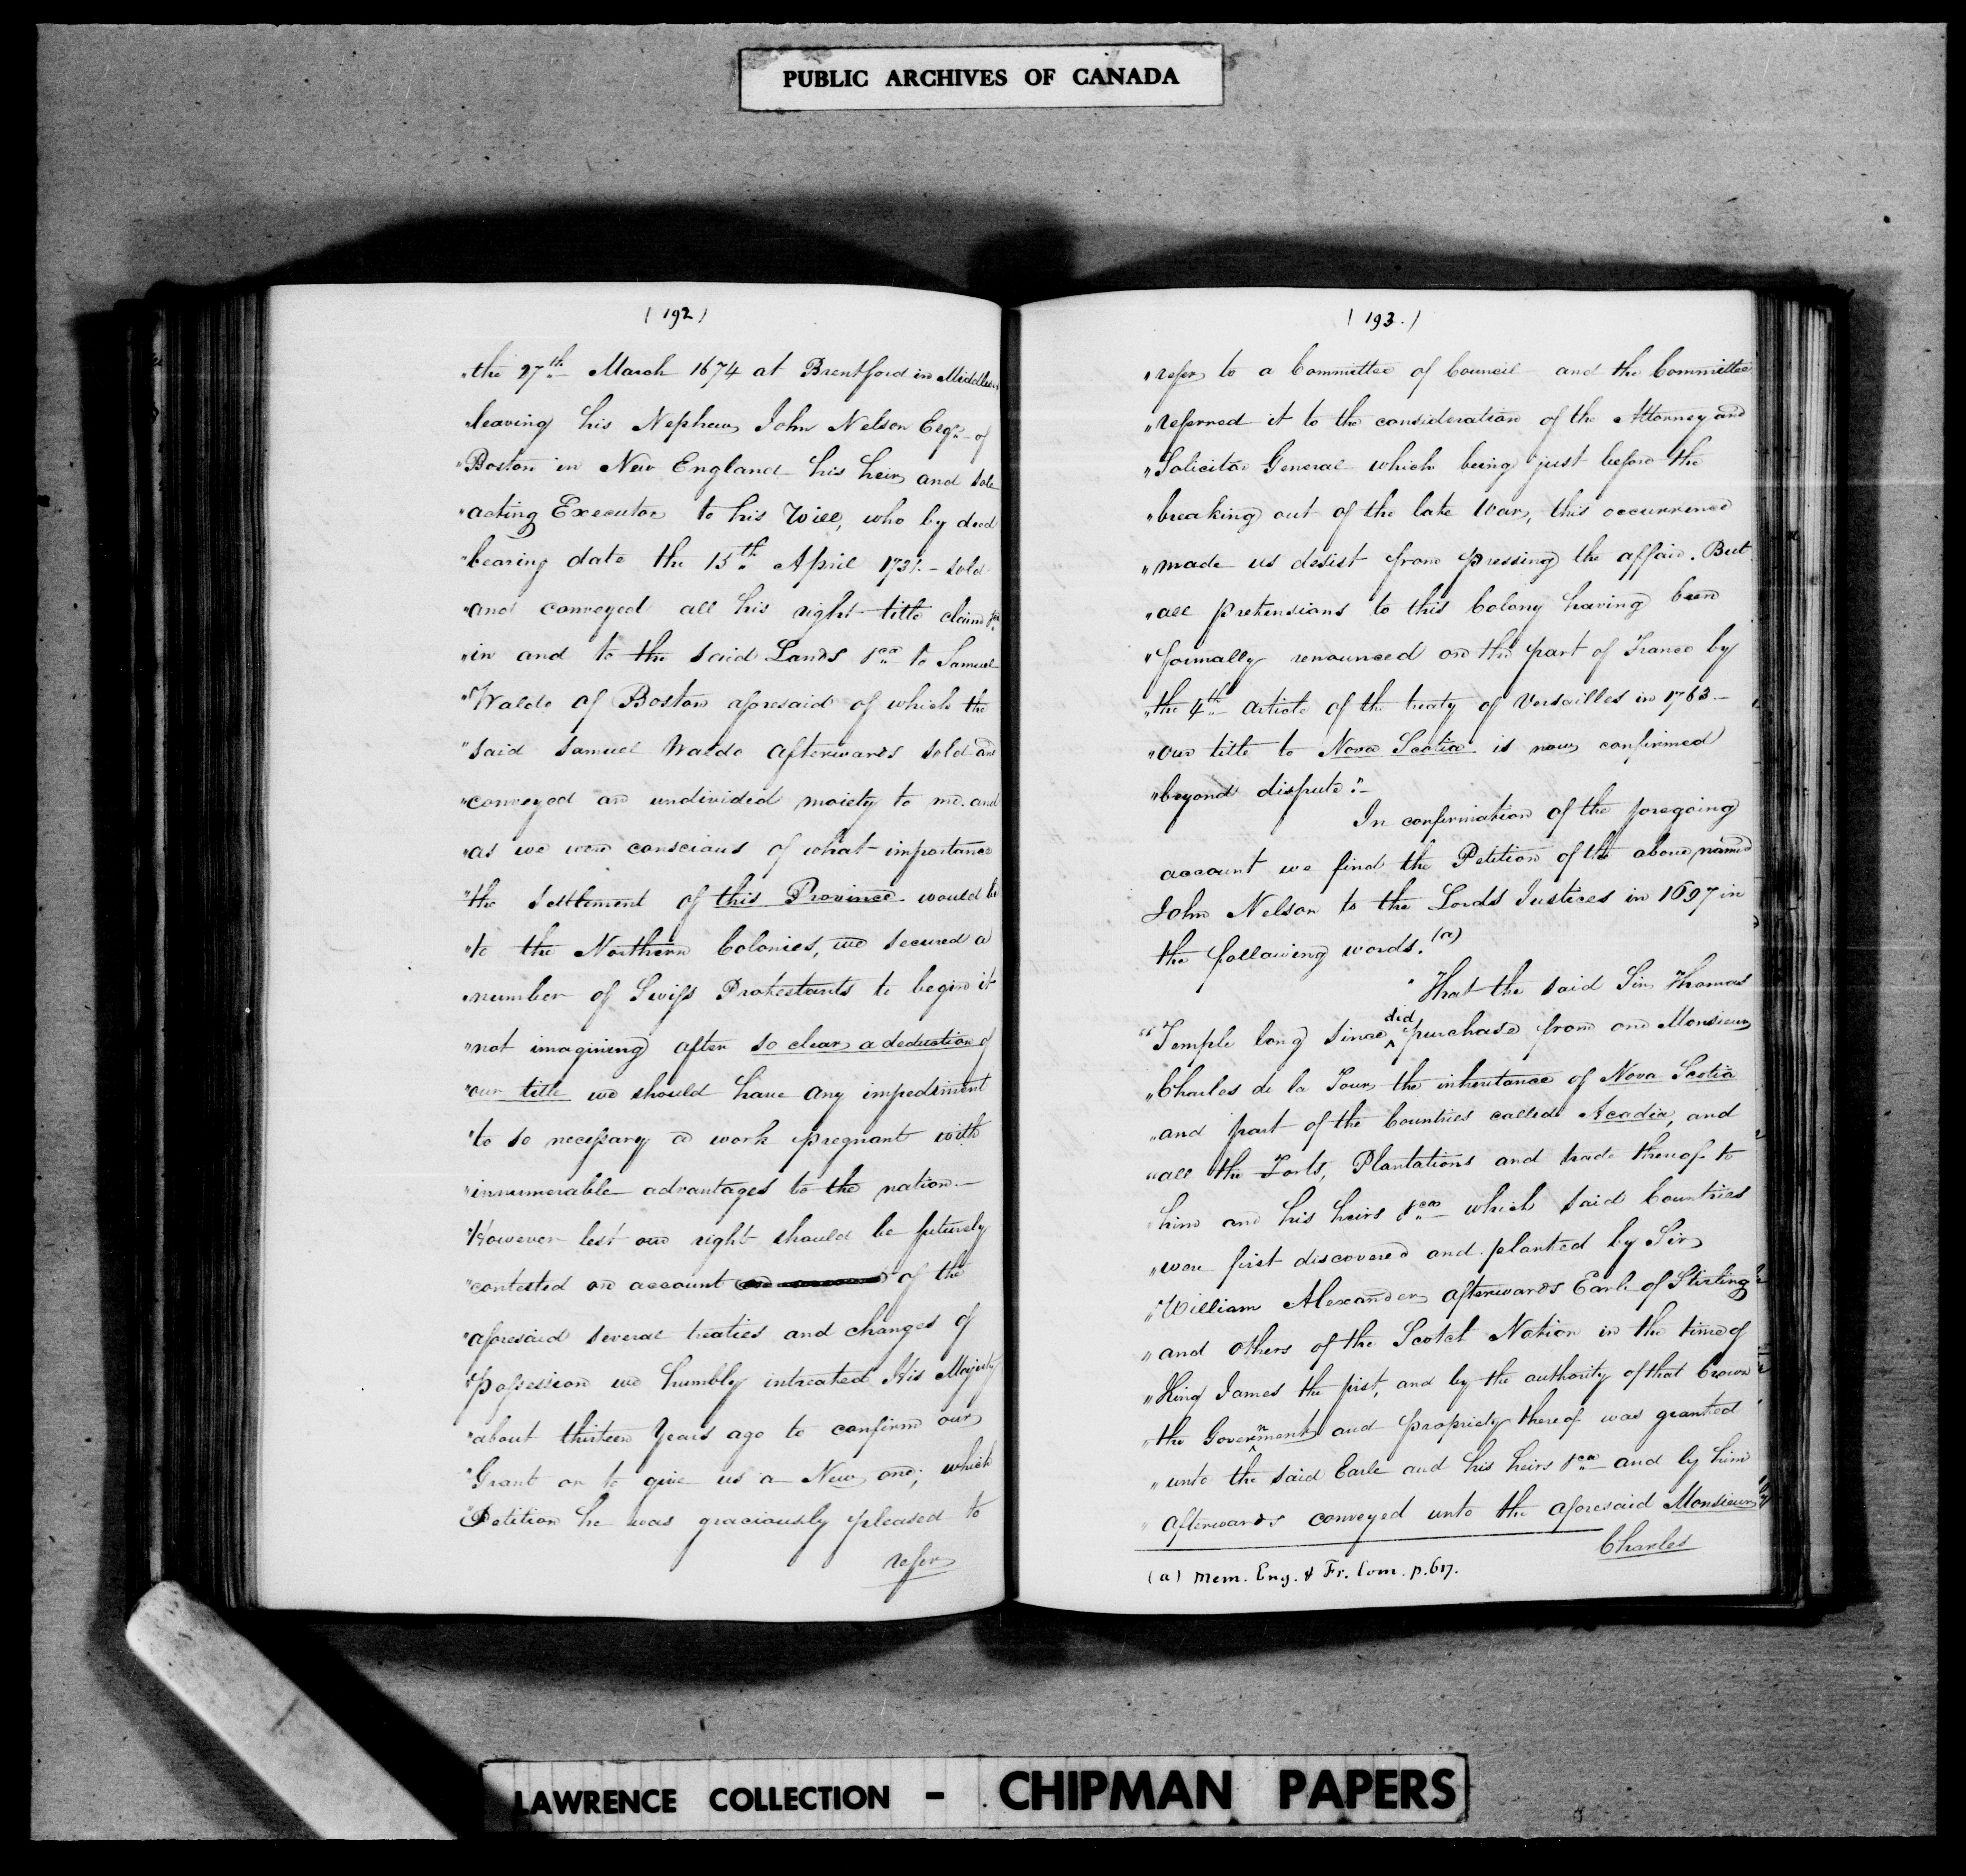 PUBLIC ARCHIVES OF CANADA
(192)
"the 27th March 1674 at Brentford in Middlesex
"leaving his Nephew John Nelson Esqr. of
"Boston in New England his heir and sole
"acting Executor to his Will, who by deed
"bearing date the 15th April 1731 - sold
"and conveyed all his right title claim &ca
"in and to the said Lands &ca to Samuel
"Waldo of Boston aforesaid of which the
"said Samuel Waldo afterwards sold and
"conveyed an undivided moiety to me. and
"as we were conscious of what importance
"the settlement of this Province would be
"to the Northern Colonies, we secured a
"number of Swiss Protestants to begin it
"not imagining after so clear a deduction of
"our title we should have any impediment
"to so necessary a work pregnant with
"innumerable advantages to the nation. -
"However lest our right should be futurely
"contested on account of the
"aforesaid several treaties and changes of
"possession we humbly intreated His Majesty
"about thirteen Years ago to confirm our
"Grant or to give us a New one; which
"Petition he was graciously pleased to
refer
(193.)
"refer to a Committee of Council and the Committee
"referred it to the consideration of the Attorney and
"Solicitor General which being just before the
"breaking out of the late War, this occurrence
"made us desist from pressing the affair. But
"all pretensions to this Colony having been
"formally renounced on the part of France by
"the 4th article of the treaty of Versailles in 1763 -
"our title to Nova Scotia is now confirmed
"beyond dispute". -
In confirmation of the foregoing
account we find the Petition of the above named
John Nelson to the Lords Justices in 1697 in
the following words. (a)
"That the said Sir Thomas
"Temple long since did purchase from one Monsieur
"Charles de la Tour the inheritance of Nova Scotia
"and part of the Countries called Acadia, and
"all the Forts, Plantations and trade thereof to
"him and his heirs &ca which said Countries
"were first discovered and planted by Sir
"William Alexander afterwards Earle of Stirling
"and others of the Scotch Nation in the time of
"King James the first, and by the authority of that Crown
"the Government and propriety thereof was granted
"unto the said Earle and his heirs &ca and by him
"afterwards conveyed unto the aforesaid Monsieur
Charles
(a) Mem. Eng. & Fr. Com. p. 617.
LAWRENCE COLLECTION - CHIPMAN PAPERS